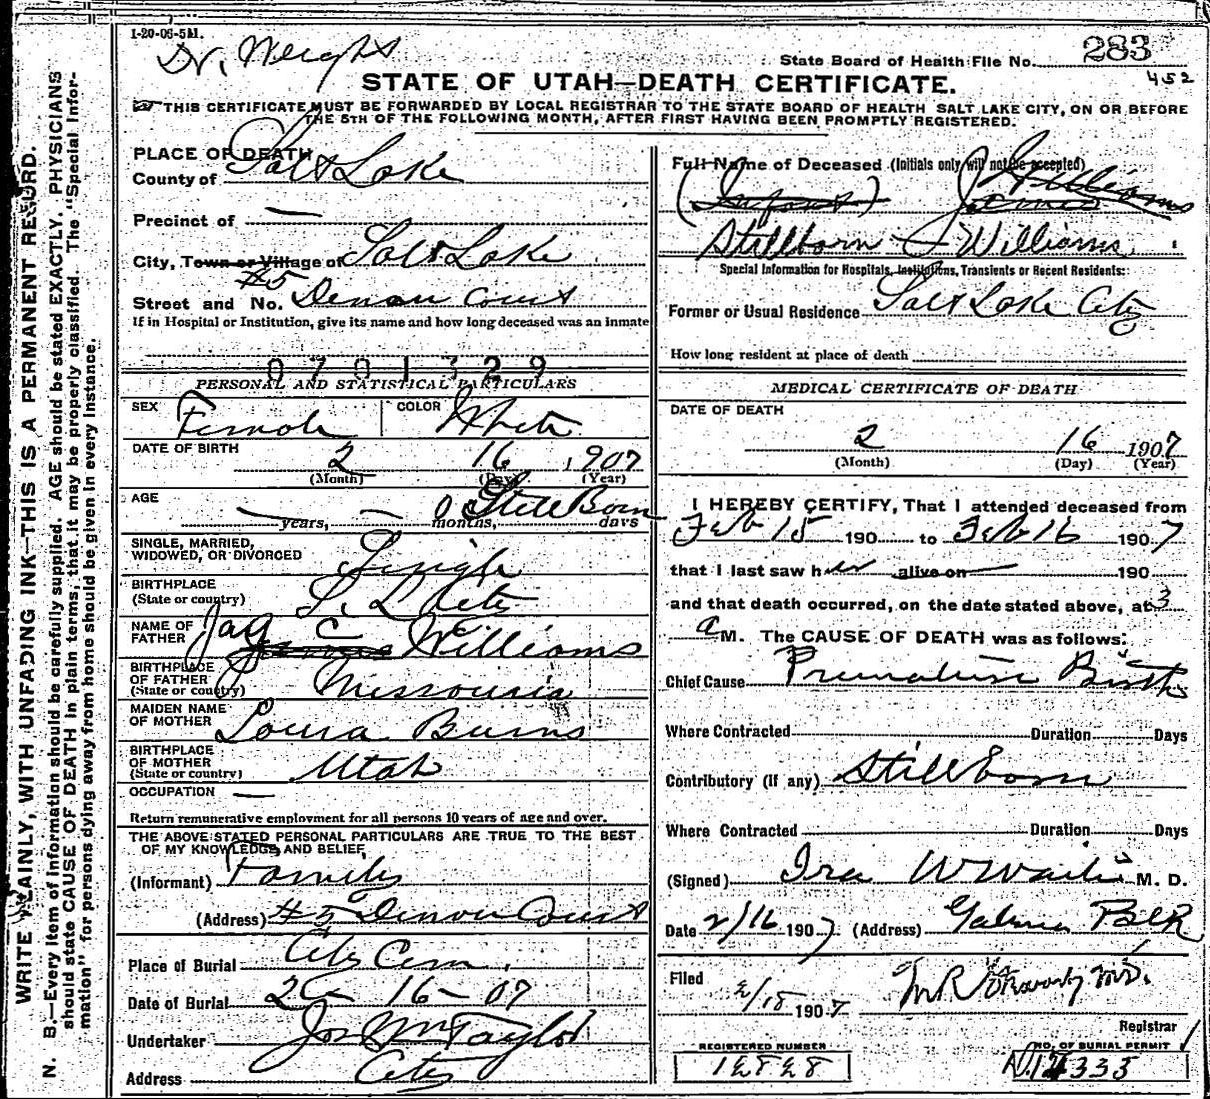 1-20-06-5M.
Dr. Wright
State Board of Health File No. 283
452
STATE OF UTAH—DEATH CERTIFICATE.
THIS CERTIFICATE MUST BE FORWARDED BY LOCAL REGISTRAR TO THE STATE BOARD OF HEALTH SALT LAKE CITY, ON OR BEFORE
THE 5TH OF THE FOLLOWING MONTH, AFTER FIRST HAVING BEEN PROMPTLY REGISTERED.
WRITE PLAINLY, WITH UNFADING INK—THIS IS A PERMANENT RECORD.
N. B.—Every item of information should be carefully supplied. AGE should be stated EXACTLY. PHYSICIANS
should state CAUSE OF DEATH in plain terms, that it may be properly classified. The "Special Infor-
mation" for persons dying away from home should be given in every instance.
PLACE OF DEATH
County of Salt Lake
Precinct of —
City, Town or Village of Salt Lake
Street and No. #5 Denou Court
If in Hospital or Institution, give its name and how long deceased was an inmate
0701329
PERSONAL AND STATISTICAL PARTICULARS
SEX Female COLOR White
DATE OF BIRTH 2 16 1907
(Month) (Day) (Year)
AGE — years, — months, Still Born days
SINGLE, MARRIED,
WIDOWED, OR DIVORCED Single
BIRTHPLACE
(State or country) S. L. City
NAME OF
FATHER Jay C Williams
BIRTHPLACE
OF FATHER
(State or country) Missouri
MAIDEN NAME
OF MOTHER Laura Burns
BIRTHPLACE
OF MOTHER
(State or country) Utah
OCCUPATION —
Return remunerative employment for all persons 10 years of age and over.
THE ABOVE STATED PERSONAL PARTICULARS ARE TRUE TO THE BEST
OF MY KNOWLEDGE AND BELIEF
(Informant) Family
(Address) #5 Denou Court
Place of Burial City Cem.
Date of Burial 2 - 16 - 07
Undertaker Jos Wm Taylor
Address City
Full Name of Deceased (Initials only will not be accepted)
(Infant) James Williams
Stillborn J Williams
Special Information for Hospitals, Institutions, Transients or Recent Residents:
Former or Usual Residence Salt Lake City
How long resident at place of death
MEDICAL CERTIFICATE OF DEATH
DATE OF DEATH
2 16 1907
(Month) (Day) (Year)
I HEREBY CERTIFY, That I attended deceased from
Feb 15 190 to Feb 16 1907
that I last saw her alive on — 190
and that death occurred, on the date stated above, at 3
a M. The CAUSE OF DEATH was as follows:
Chief Cause Premature Birth
Where Contracted Duration Days
Contributory (If any) Stillborn
Where Contracted Duration Days
(Signed) Ira M. D.
Date 2/16 1907 (Address)
Filed 2/18 1907 M R Stewart M.D.
Registrar
REGISTERED NUMBER NO. OF BURIAL PERMIT
12828 12333